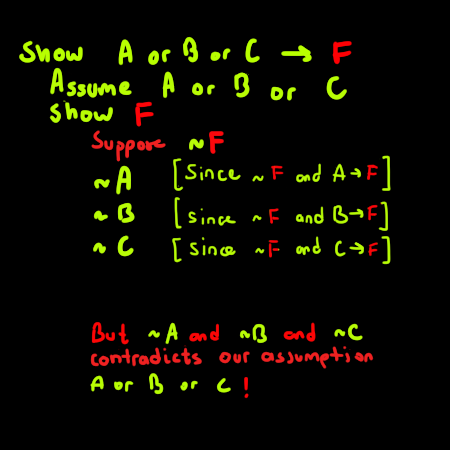 Show A or B or C → F
Assume A or B or C
Show F
Suppose ~F
~A [Since ~F and A→F]
~B [since ~F and B→F]
~C [since ~F and C→F]
But ~A and ~B and ~C
contradicts our assumption
A or B or C !